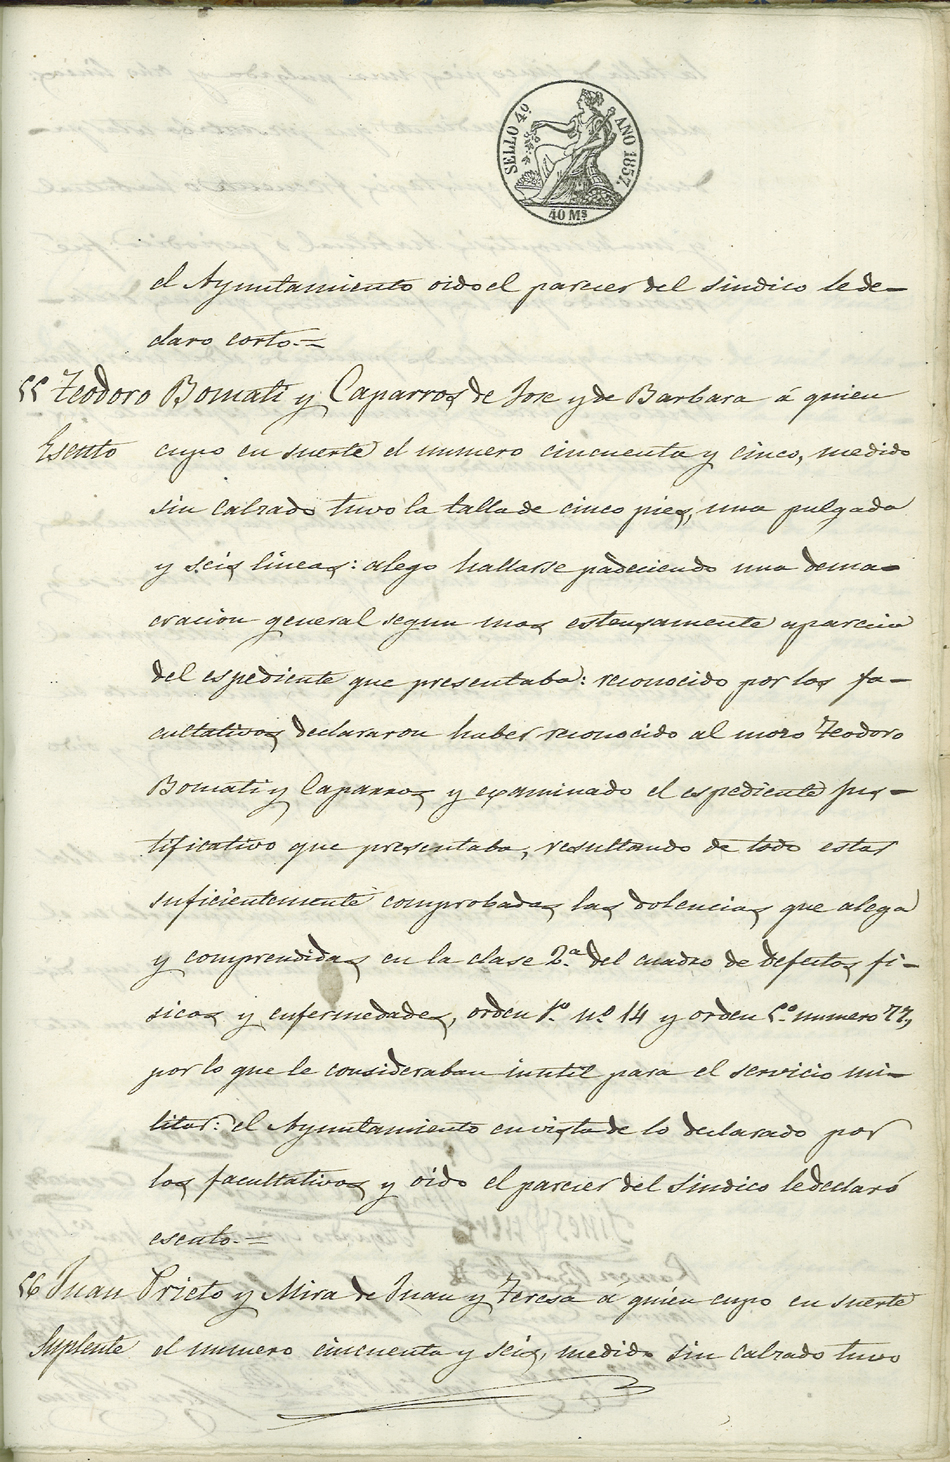 SELLO 4º AÑO 1857.
40 Ms
el Ayuntamiento oido el parecer del sindico le de-
claro corto.=
55 Teodoro Bomati y Caparros de Jose y de Barbara á quien
Esento cupo en suerte el numero cincuenta y cinco, medido
sin calzado tuvo la talla de cinco pies, una pulgada
y seis lineas: alego hallarse padeciendo una dema-
cracion general segun mas estensamente aparecia
del espediente que presentaba: reconocido por los fa-
cultativos declararon haber reconocido al mozo Teodoro
Bomati y Caparros y examinado el espediente jus-
tificativo que presentaba, resultando de todo estar
suficientemente comprobadas las dolencias que alega
y comprendidas en la clase 2.ª del cuadro de defectos fi-
sicos y enfermedades, orden 1.º nº 14 y orden 5.º numero 77,
por lo que le consideraban inutil para el servicio mi-
litar: el Ayuntamiento en vista de lo declarado por
los facultativos y oido el parecer del Sindico le declaró
esento.=
56 Juan Prieto y Mira de Juan y Teresa á quien cupo en suerte
Suplente el numero cincuenta y seis, medido sin calzado tuvo